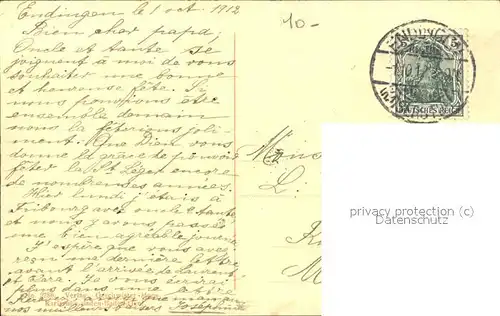 Endingen le 1 oct. 1912
10-
Bien cher papa,
Oncle et tante se
joignent à moi de vous
souhaiter une bonne
et heureuse fête. Si
nous pouvions être
ensemble demain
nous la fêterions joli-
ment. Que Dieu vous
donne la grâce de pouvoir
fêter la St Léger encore
de nombreuses années.
Hier lundi j'étais à
Fribourg avec oncle & tante
et nous y avons passé
une bien agréable journée
J'espère que vous avez
reçu ma dernière lettre
avant l'arrivée de Laurent
et Clara. Je vous écrirai
plus dans une lettre
meilleurs baisers Joséphine
DEUTSCHES REICH
L.
privacy protection (c)
Datenschutz